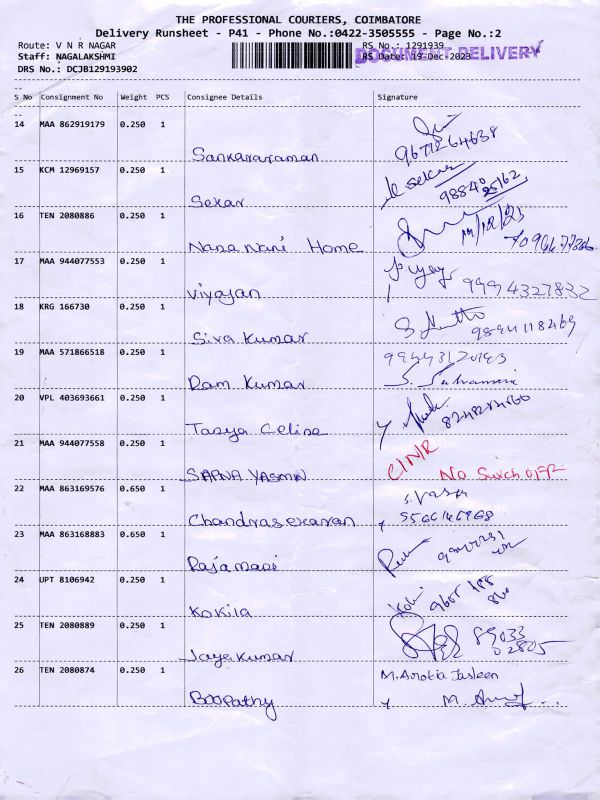 THE PROFESSIONAL COURIERS, COIMBATORE
Delivery Runsheet - P41 - Phone No.:0422-3505555 - Page No.:2
Route: V N R NAGAR RS No.: 1291939
Staff: NAGALAKSHMI RS Date: 19-Dec-2023 DOCUMENT DELIVERY
DRS No.: DCJB129193902
--
S No Consignment No Weight PCS Consignee Details Signature
--
14 MAA 862919179 0.250 1
Sankararaman
15 KCM 12969157 0.250 1 sekar
Sekar
16 TEN 2080886 0.250 1
Nana Nani Home
17 MAA 944077553 0.250 1
Viyajan 9994327832
18 KRG 166730 0.250 1
Siva Kumar 9894118469
19 MAA 571866518 0.250 1
Ram Kumar
20 VPL 403693661 0.250 1
Tanya Celine
21 MAA 944077558 0.250 1 C/N/R
SAPNA YASMIN No Swich OFF
22 MAA 863169576 0.650 1
Chandrasekaran
23 MAA 863168883 0.650 1
Rajamani
24 UPT 8106942 0.250 1
Kokila
25 TEN 2080889 0.250 1 89033
Jayekumar 02805
26 TEN 2080874 0.250 1 M. Arokia Jasleen
Boopathy